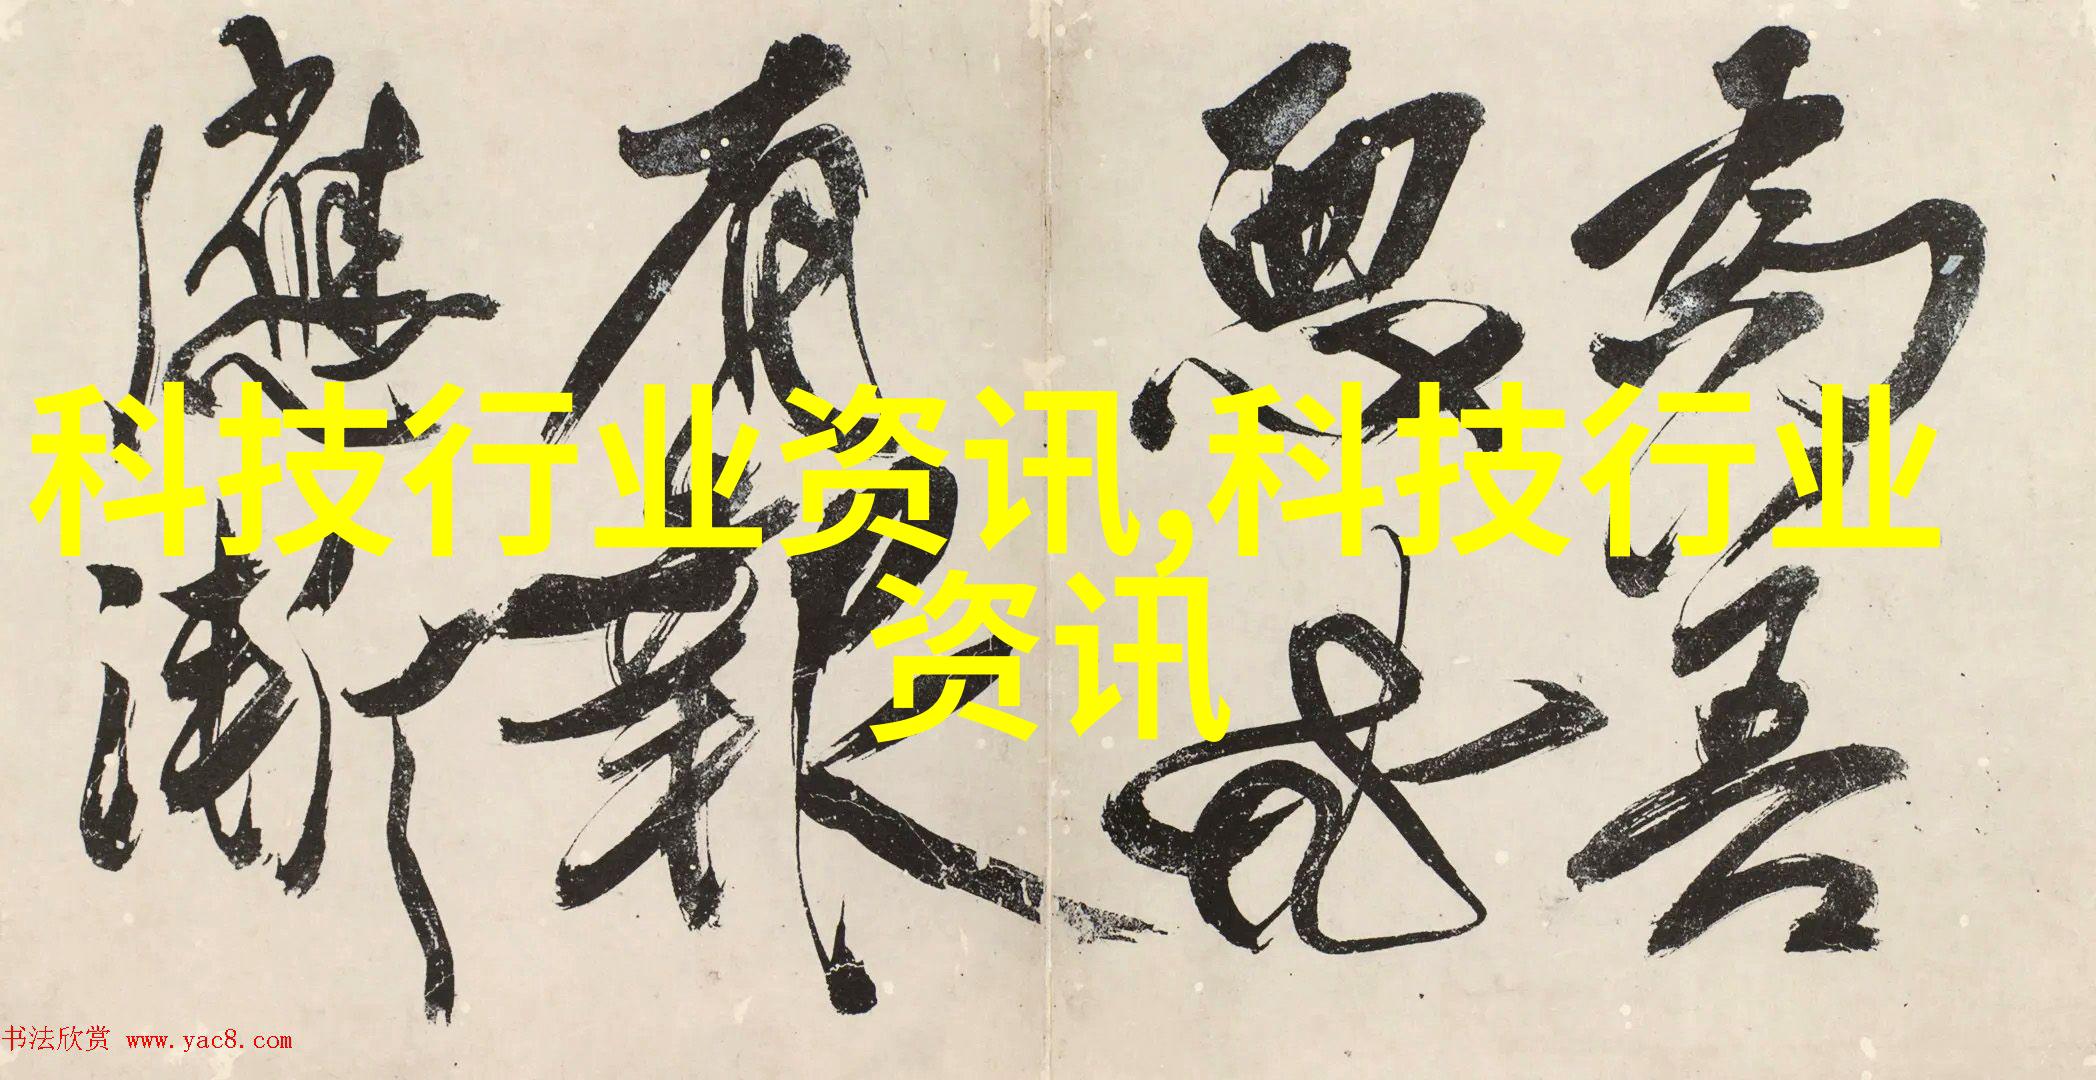 為善
有報
應
科技行业资讯,科技行业
资讯
书法欣赏 www.yac8.com